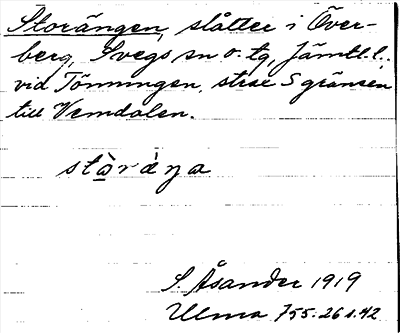 Storängen, slåtter i Över-
berg, Svegs sn o. tg, Jämtl. l.,
vid Tönningen, strax S gränsen
till Vemdalen.
stòràŋa
S. Åsander 1919
Ulma 755:26 s. 42